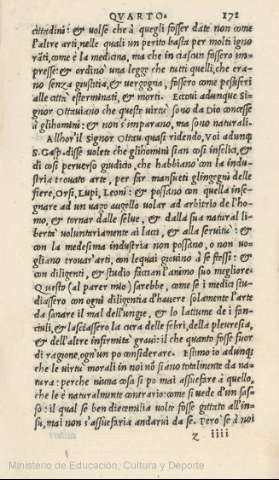 QVARTO. 171
cittadini: & uolse che à quegli fosser date non come
l'altre arti, nelle quali un perito basta per molti igno
rāti, come è la medicina, ma che in ciascun fossero im
presse: & ordinò una legge che tutti quelli, che era-
no senza giustitia, & uergogna, fossero come pestiferi
alle cittâ esterminati, & morti. Eccoui adunque Si-
gnor Ottauiano che queste uirtù sono da Dio concesse
à glihomini: & non s'imparano, ma sono naturali.
Allhor'il Signor Ottau. quasi ridendo, Voi adunq
S. Gasp. disse uolete che glihomini sian cosi infelici, &
di cosi peruerso giudicio, che habbiano con la indu-
stria trouato arte, per far mansueti glingegni delle
fiere, Orsi, Lupi, Leoni: & possano con quella inse-
gnare ad un uago augello uolar ad arbitrio de l'ho-
mo, & tornar dalle selue, & dalla sua natural li-
bertâ uoluntariamente ai lacci, & alla seruitù: & 
con la medesima industria non possano, o non uo-
gliano trouar'arti, con lequai giouino à se stessi: & 
con diligenti, & studio faccian l'animo suo megliore.
Questo (al parer mio) sarebbe, come se i medici stu-
diassero con ogni diligentia d'hauere solamente l'arte
da sanare il mal dell'ungie, & lo lattume dei fan-
ciulli, & lasciassero la cura delle febri, della pleuresia,
& dell'altre infirmità graui: il che quanto fosse fuor
di ragione, ogn'un pò considerare. Estimo io adunq
che le uirtù morali in noi nō siano totalmente da na-
tura: perche niuna cosa si pò mai assuefare à quello,
che le è naturalmente contrario: come si uede d'un sas-
so: il qual se ben diecemilia uolte fosse gittato all'in-
sù, mai non s'assuefaria andarui da se. Però se à noi
z iiii
Ministerio de Educación, Cultura y Deporte